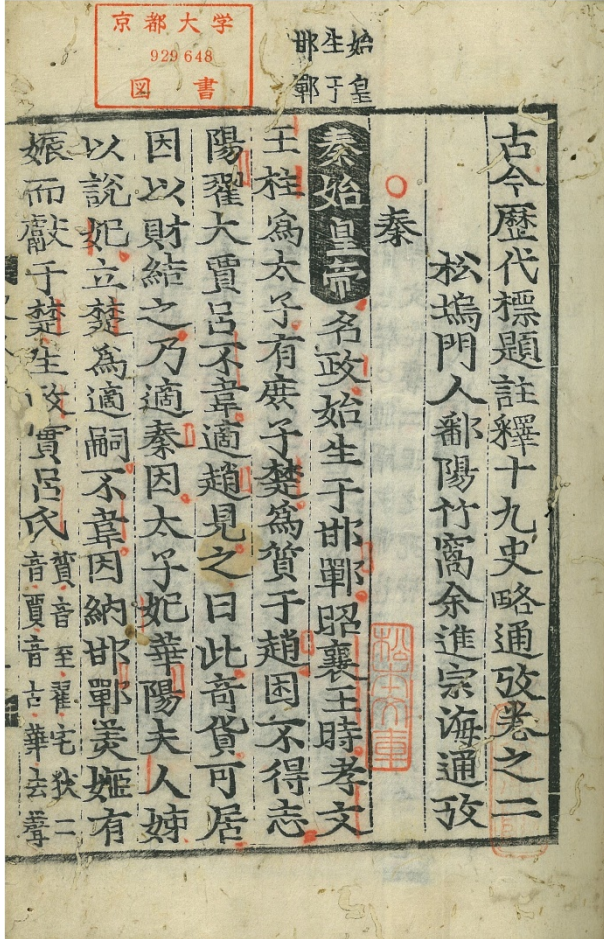 京都大学
929648
図書
始皇
生于
邯鄲
古今歷代標題註釋十九史略通攷卷之二
松塢門人鄱陽竹窩余進宗海通攷
秦
秦始皇帝名政始生于邯鄲昭襄王時孝文
王柱爲太子有庶子楚爲質于趙困不得志
陽翟大賈呂不韋適趙見之曰此奇貨可居
因以財結之乃適秦因太子妃華陽夫人姊
以說妃立楚爲適嗣不韋因納邯鄲美姬有
娠而獻于楚生政實呂氏質音至翟宅狄二
音賈音古華去聲